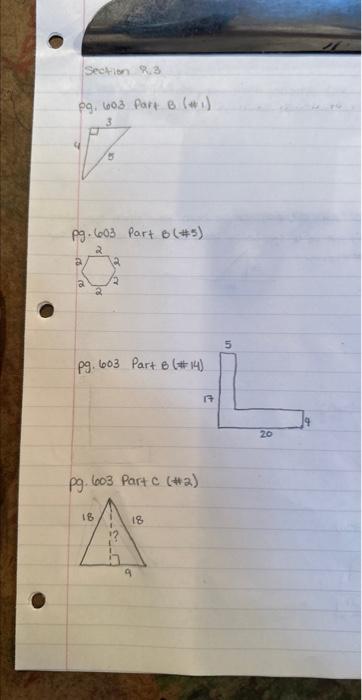 Section 9.3
pg. 603 Part B (#1)
3
4
5
pg. 603 Part B (#5)
2
2
2
2
2
2
pg. 603 Part B (#14)
5
17
4
20
pg. 603 Part C (#2)
18
18
?
9